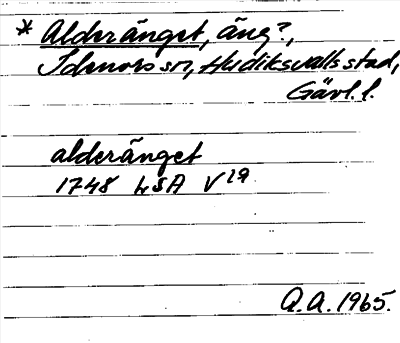 * Alderänget, äng?,
Idenors sn, Hudiksvalls stad,
Gävl. l.
alderänget
1748 LSA V 19
Q.A. 1965.